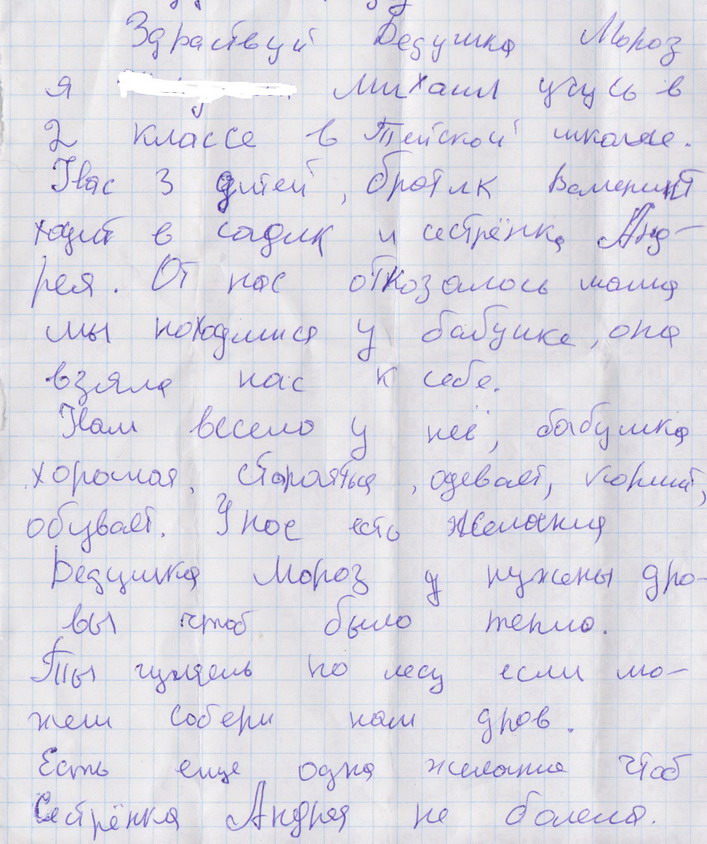 Здраствуй Дедушка Мороз
я Михаил учусь в
2 классе в Тейской школе.
Унас 3 дитей, братик Валентит
ходит в садик и сестрёнка Анд-
рея. От нас отказалось мама
мы находимся у бабушке, она
взяла нас к себе.
Нам весело у неё, бабушка
хорошая, стараятьца, одевает, кормит,
обувает. У нас есть желания
Дедушка Мороз у нужены дро-
вы чтоб было тепло.
Ты гуляешь по лесу если мо-
жеш собери нам дров.
Есть еще одна желание чтоб
Сестрёнка Андрея не болела.